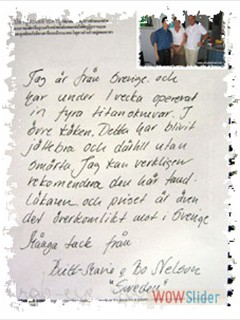 Jag är från Sverige och
har under 1 vecka opererat
in fyra titanskruvar. I
övre käken. Detta har blivit
jättebra och därtill utan
smärta. Jag kan verkligen
rekomendera den här tand-
läkaren och priset är även
det överkomligt mot i Sverige
Många tack från
Britt-Marie o Bo Nelson
"Sweden"
WOWSlider